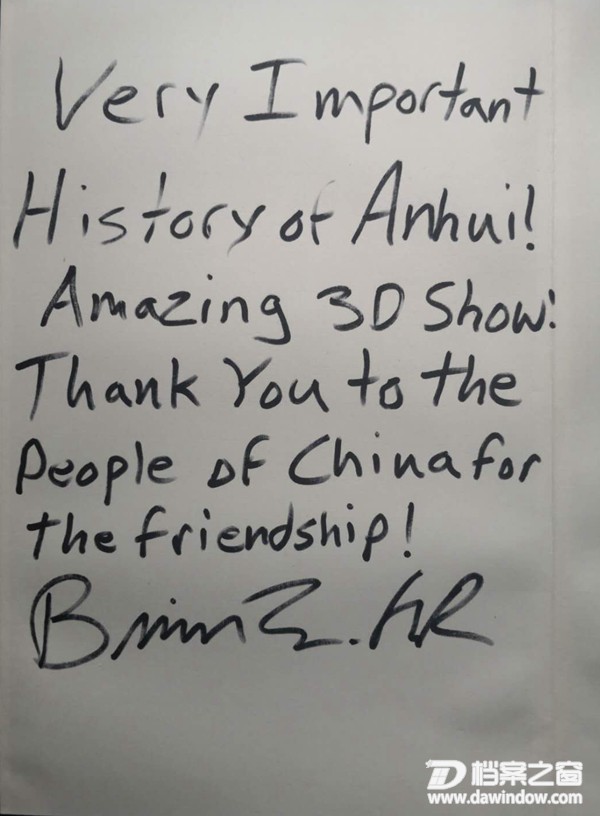 Very Important
History of Anhui!
Amazing 3D Show!
Thank You to the
People of China for
the friendship!
档案之窗
www.dawindow.com